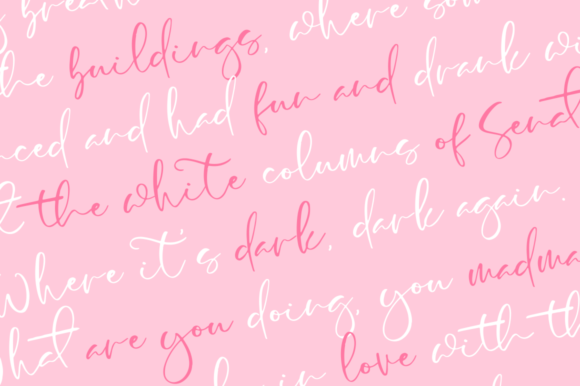 breath
the buildings, where som
nced and had fun and drank wi
the white columns of Senat
Where it's dark, dark again.
What are you doing, you madma
love with th